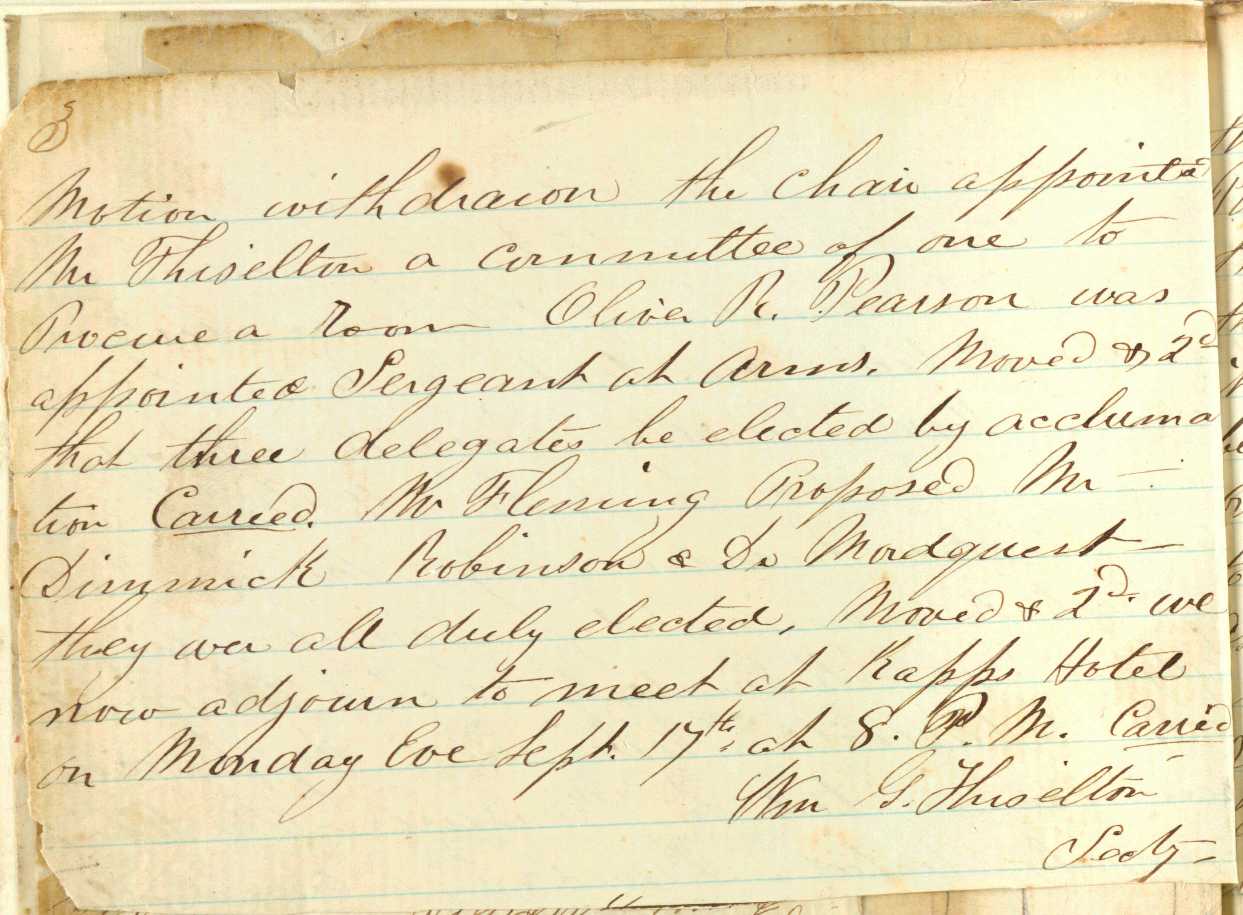 3
Motion withdrawn the Chair appointed
Mr Thiselton a committee of one to
Procure a room Oliver R. Pearson was
appointed Sergeant at Arms. Moved & 2d
that three delegates be elected by acclama
tion Carried. Mr Fleming Proposed Mr
Dimmick Robinson & Dr Mordquest
they wer all duly elected, Moved & 2d. we
now adjourn to meet at Kapps Hotel
on Monday Eve Sept. 17th. at 8. P. M. Carried
Wm G. Thiselton
Secty